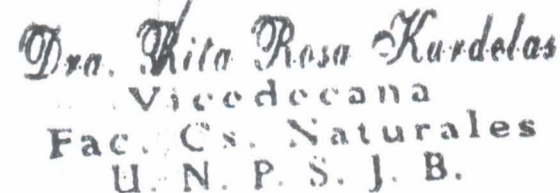 Dra. Rita Rosa Kurdelas
Vicedecana
Fac. Cs. Naturales
U. N. P. S. J. B.